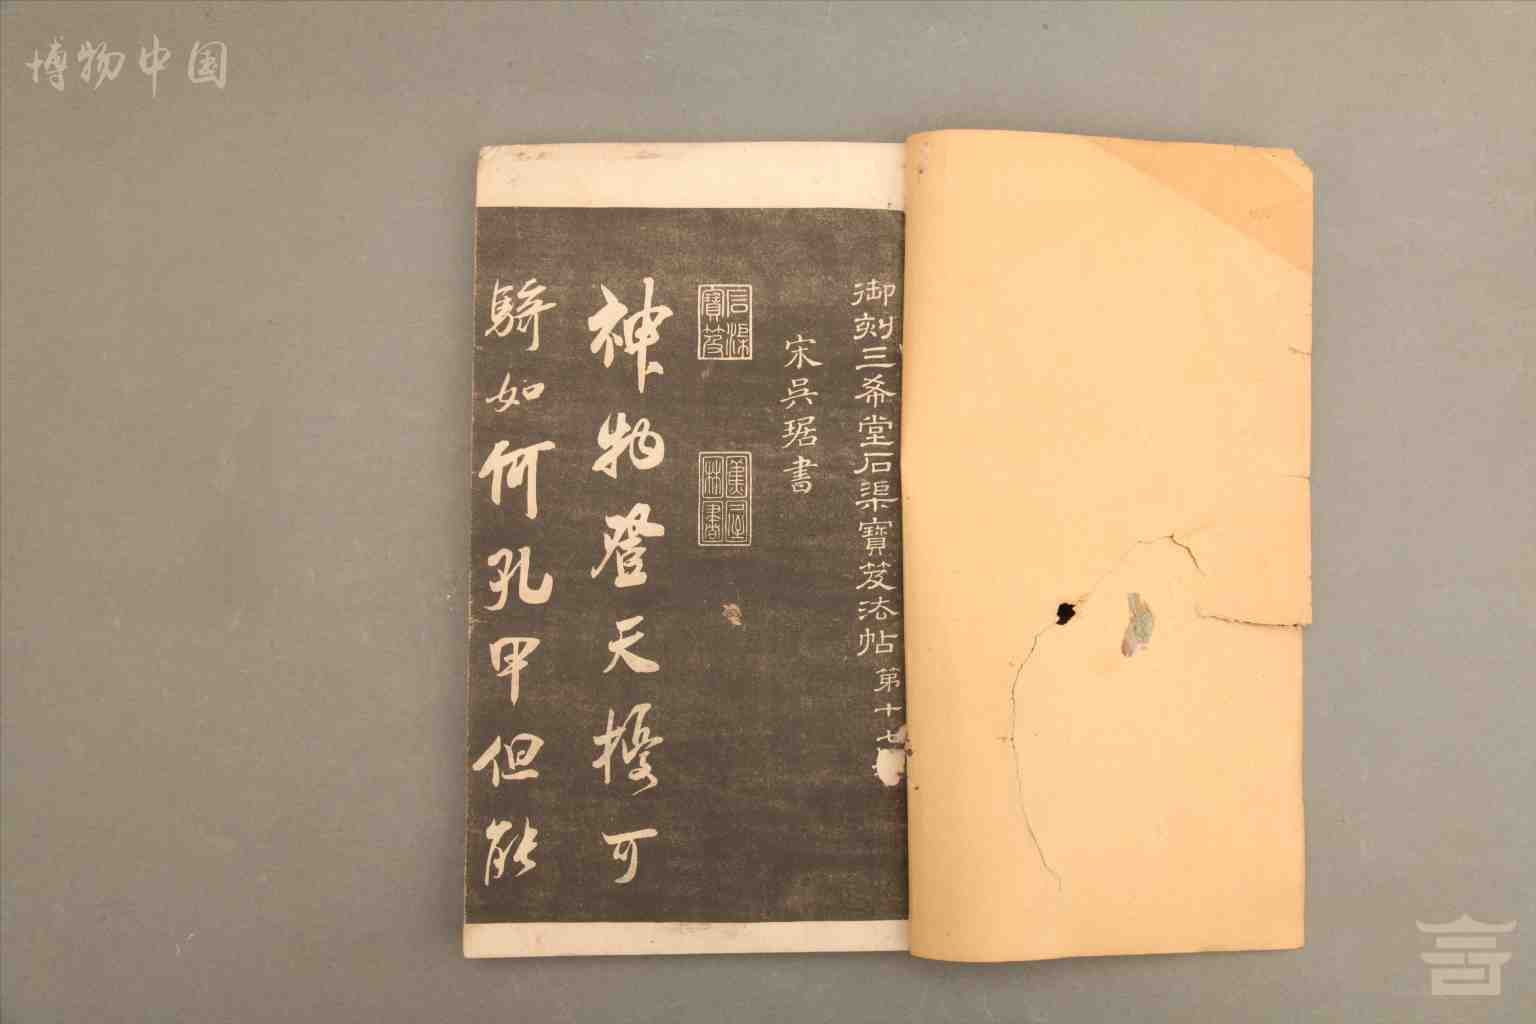 博物中国
御刻三希堂石渠寶笈法帖 第十七
宋吳琚書
石渠
寶笈
神物登天擾可
騎如何孔甲但能